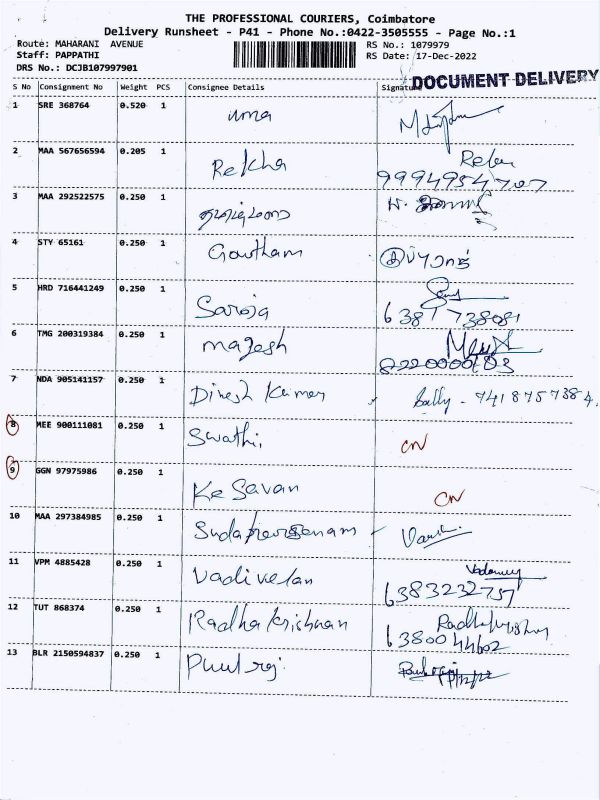 THE PROFESSIONAL COURIERS, Coimbatore
Delivery Runsheet - P41 - Phone No.:0422-3505555 - Page No.:1
Route: MAHARANI AVENUE RS No.: 1079979
Staff: PAPPATHI RS Date: 17-Dec-2022
DRS No.: DCJB107997901
DOCUMENT DELIVERY
S No Consignment No Weight PCS Consignee Details Signature
1 SRE 368764 0.520 1 uma
2 MAA 567656594 0.205 1 Rekha
3 MAA 292522575 0.250 1
4 STY 65161 0.250 1 Gowtham
5 HRD 716441249 0.250 1 Saroja
6 TMG 200319384 0.250 1 magesh
7 NDA 905141157 0.250 1 Dinesh Kumar 7418757384
8 MEE 900111081 0.250 1 Swathi CN
9 GGN 97975986 0.250 1 Kesavan CN
10 MAA 297384985 0.250 1
11 VPM 4885428 0.250 1 Vadivelan 6383232757
12 TUT 868374 0.250 1 Radhakrishnan 6380044602
13 BLR 2150594837 0.250 1